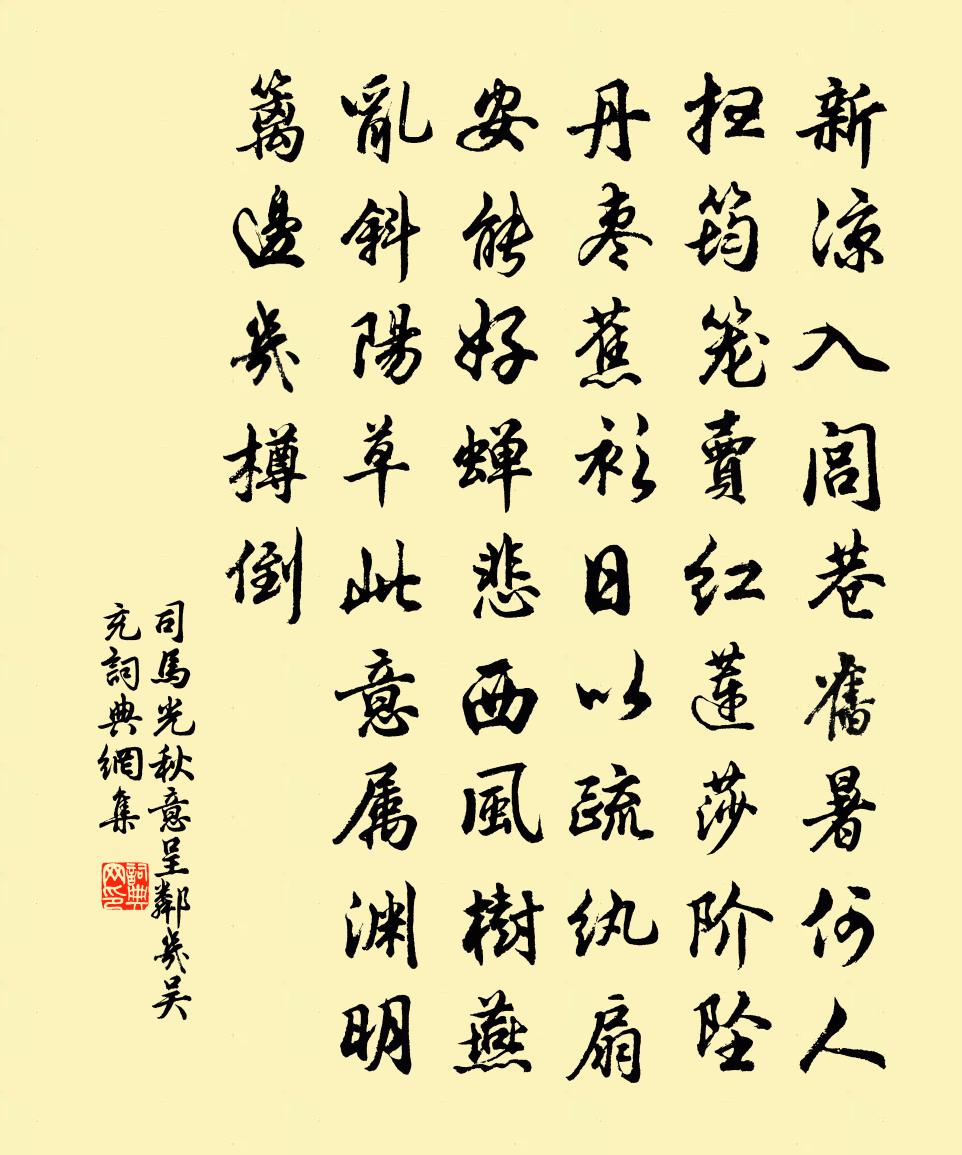 新涼入闾巷舊暑何人
扫筠笼賣红蓮莎阶坠
丹枣蕉衫日以疏纨扇
安能好蝉悲西風樹燕
亂斜陽草此意属渊明
篱邊幾樽倒
司馬光秋意呈鄰幾吴
充詞典網集
詞典
网印